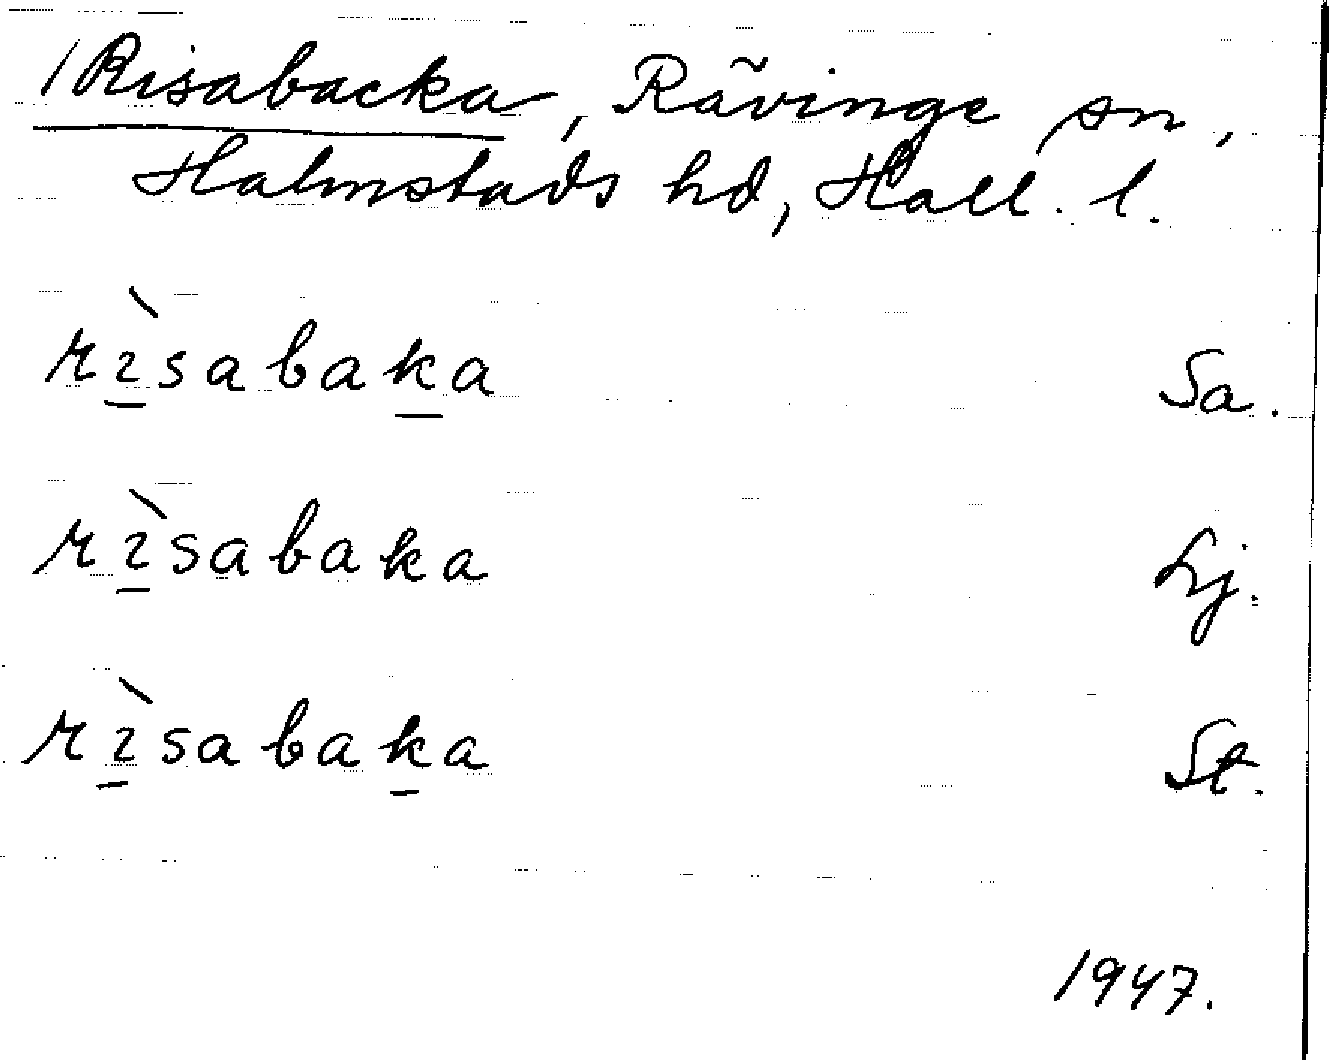 /Risabacka, Rävinge sn,
Halmstads hd, Hall. l.
rìsabaka Sa.
rìsabaka Lj.
rìsabaka St.
1947.